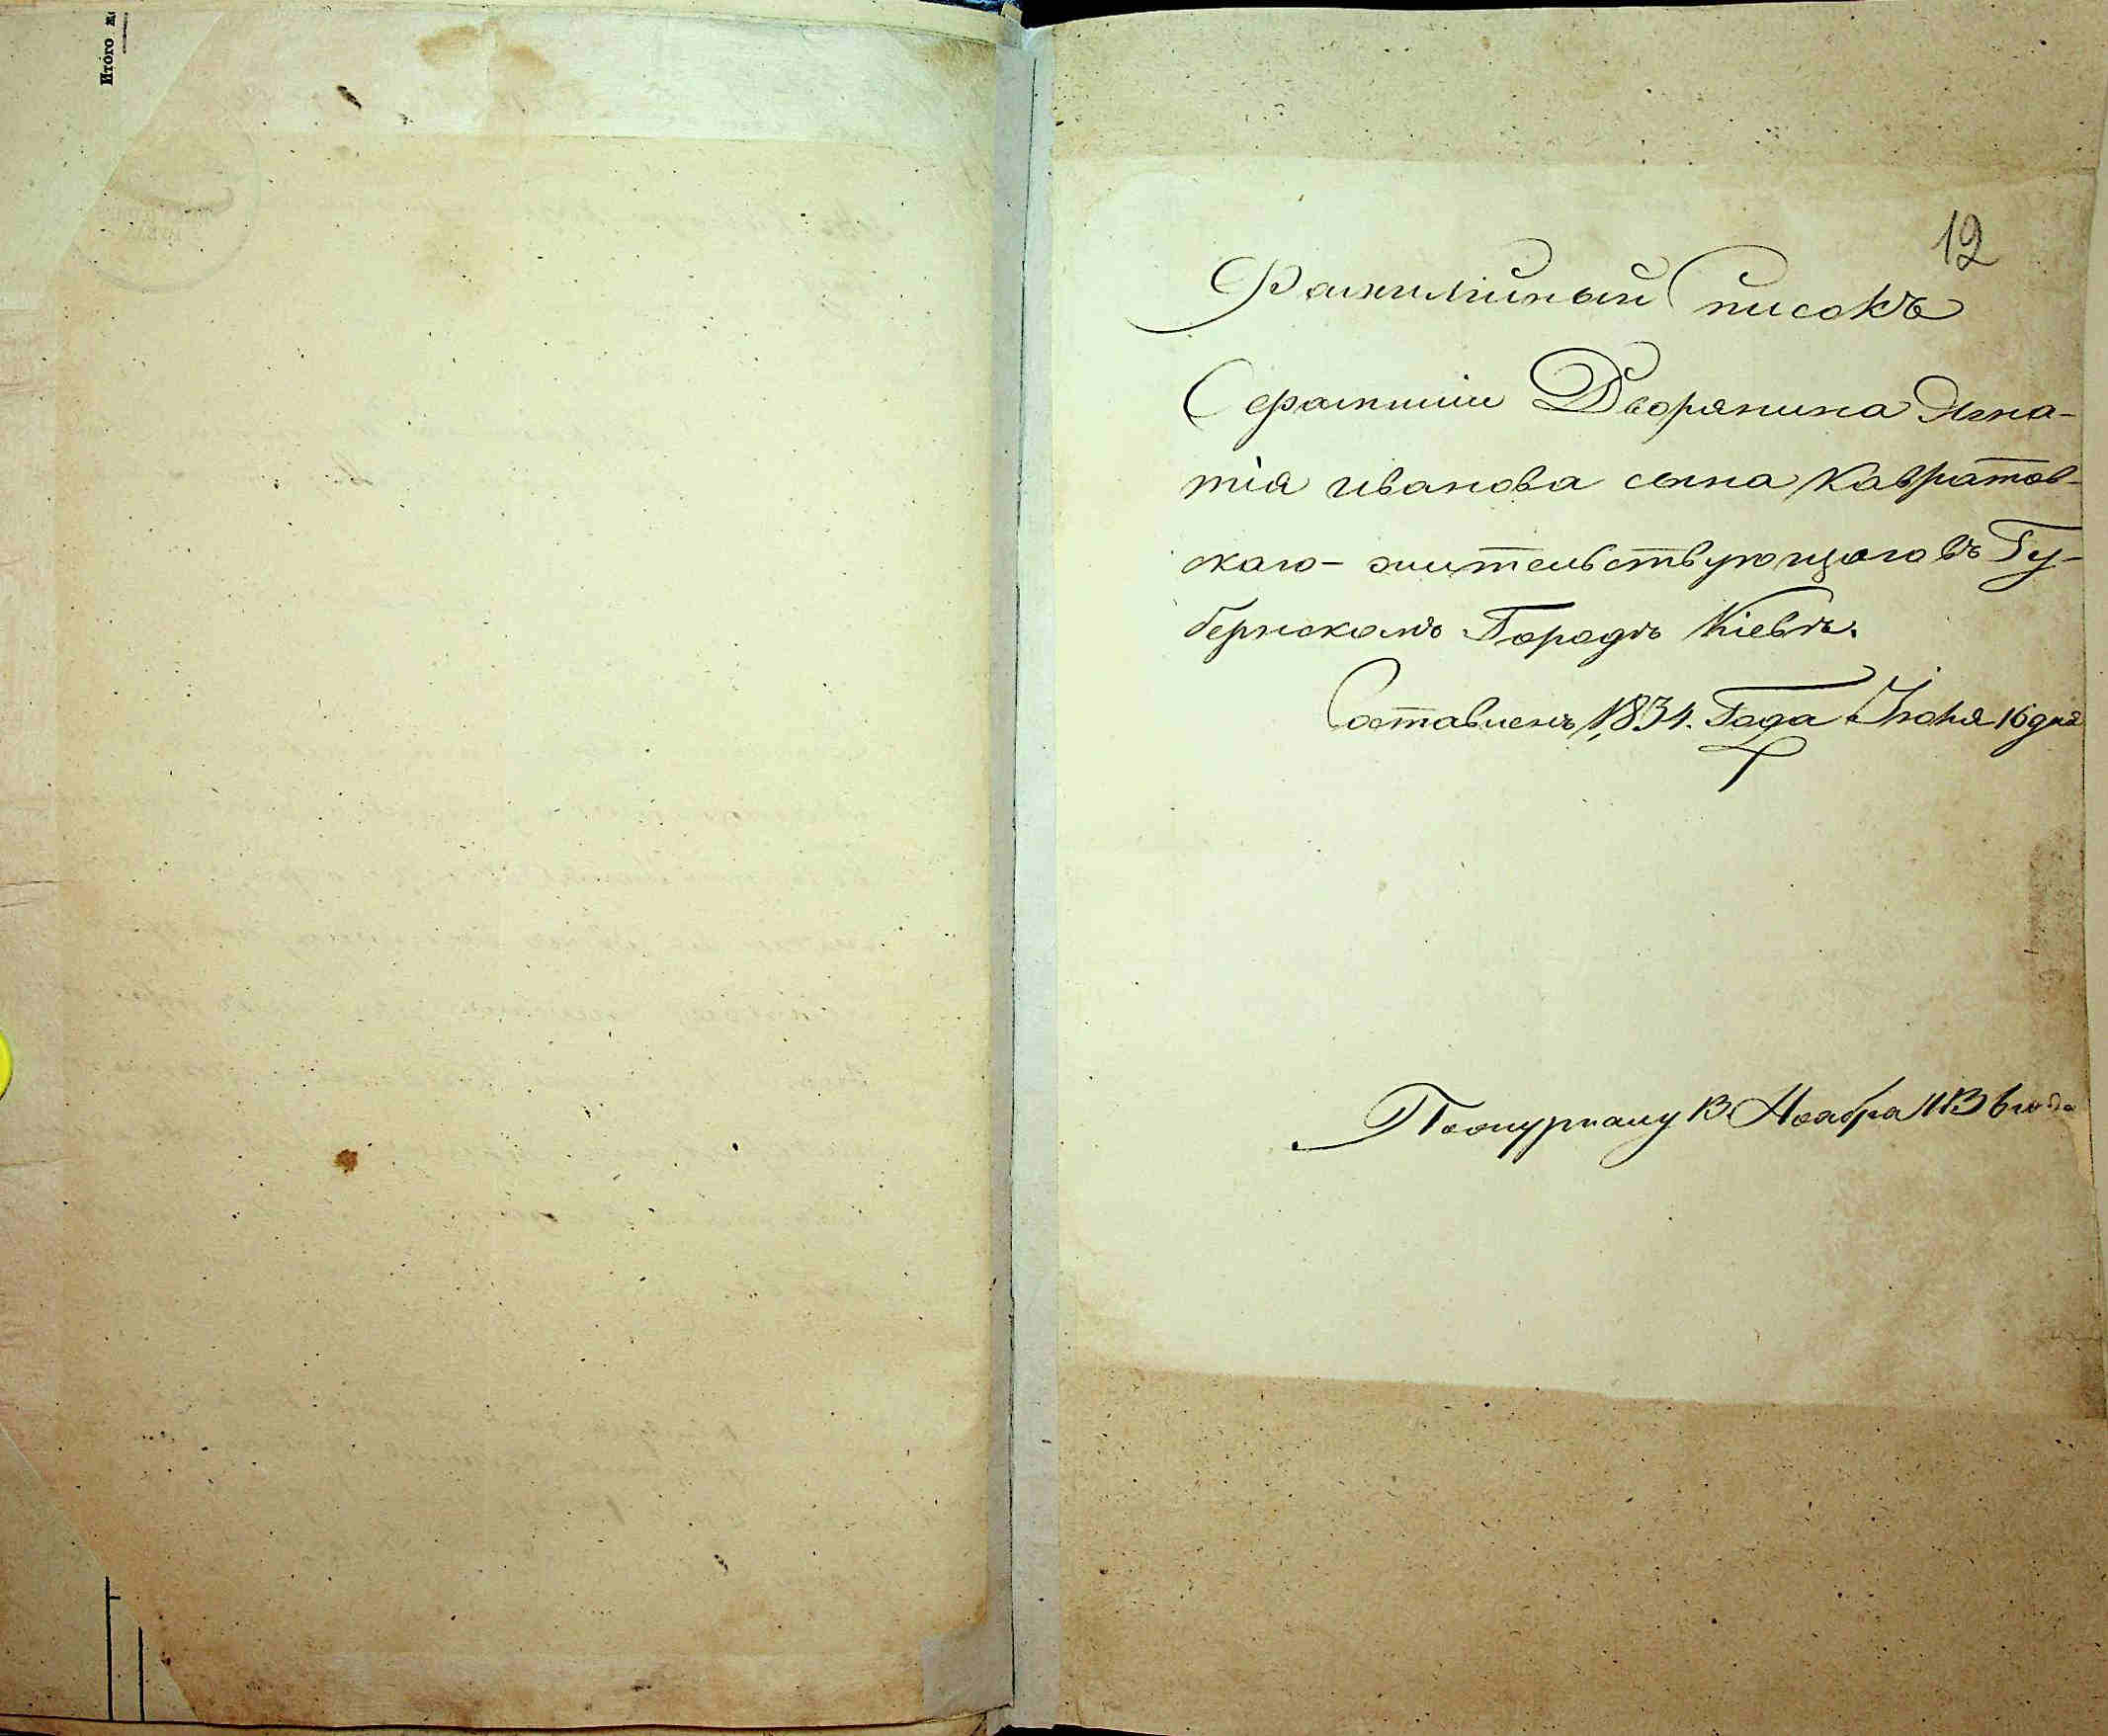 Итого
12
Фамилійный Списокъ
Фамиліи Дворянина Игна-
тія иванова сына Кавратов-
скаго - жительствующаго въ Гу-
бернскомъ Городѣ Кіевѣ.
Составленъ 1834. Года Іюня 16 дня
По журналу 13 Ноября 1836 года